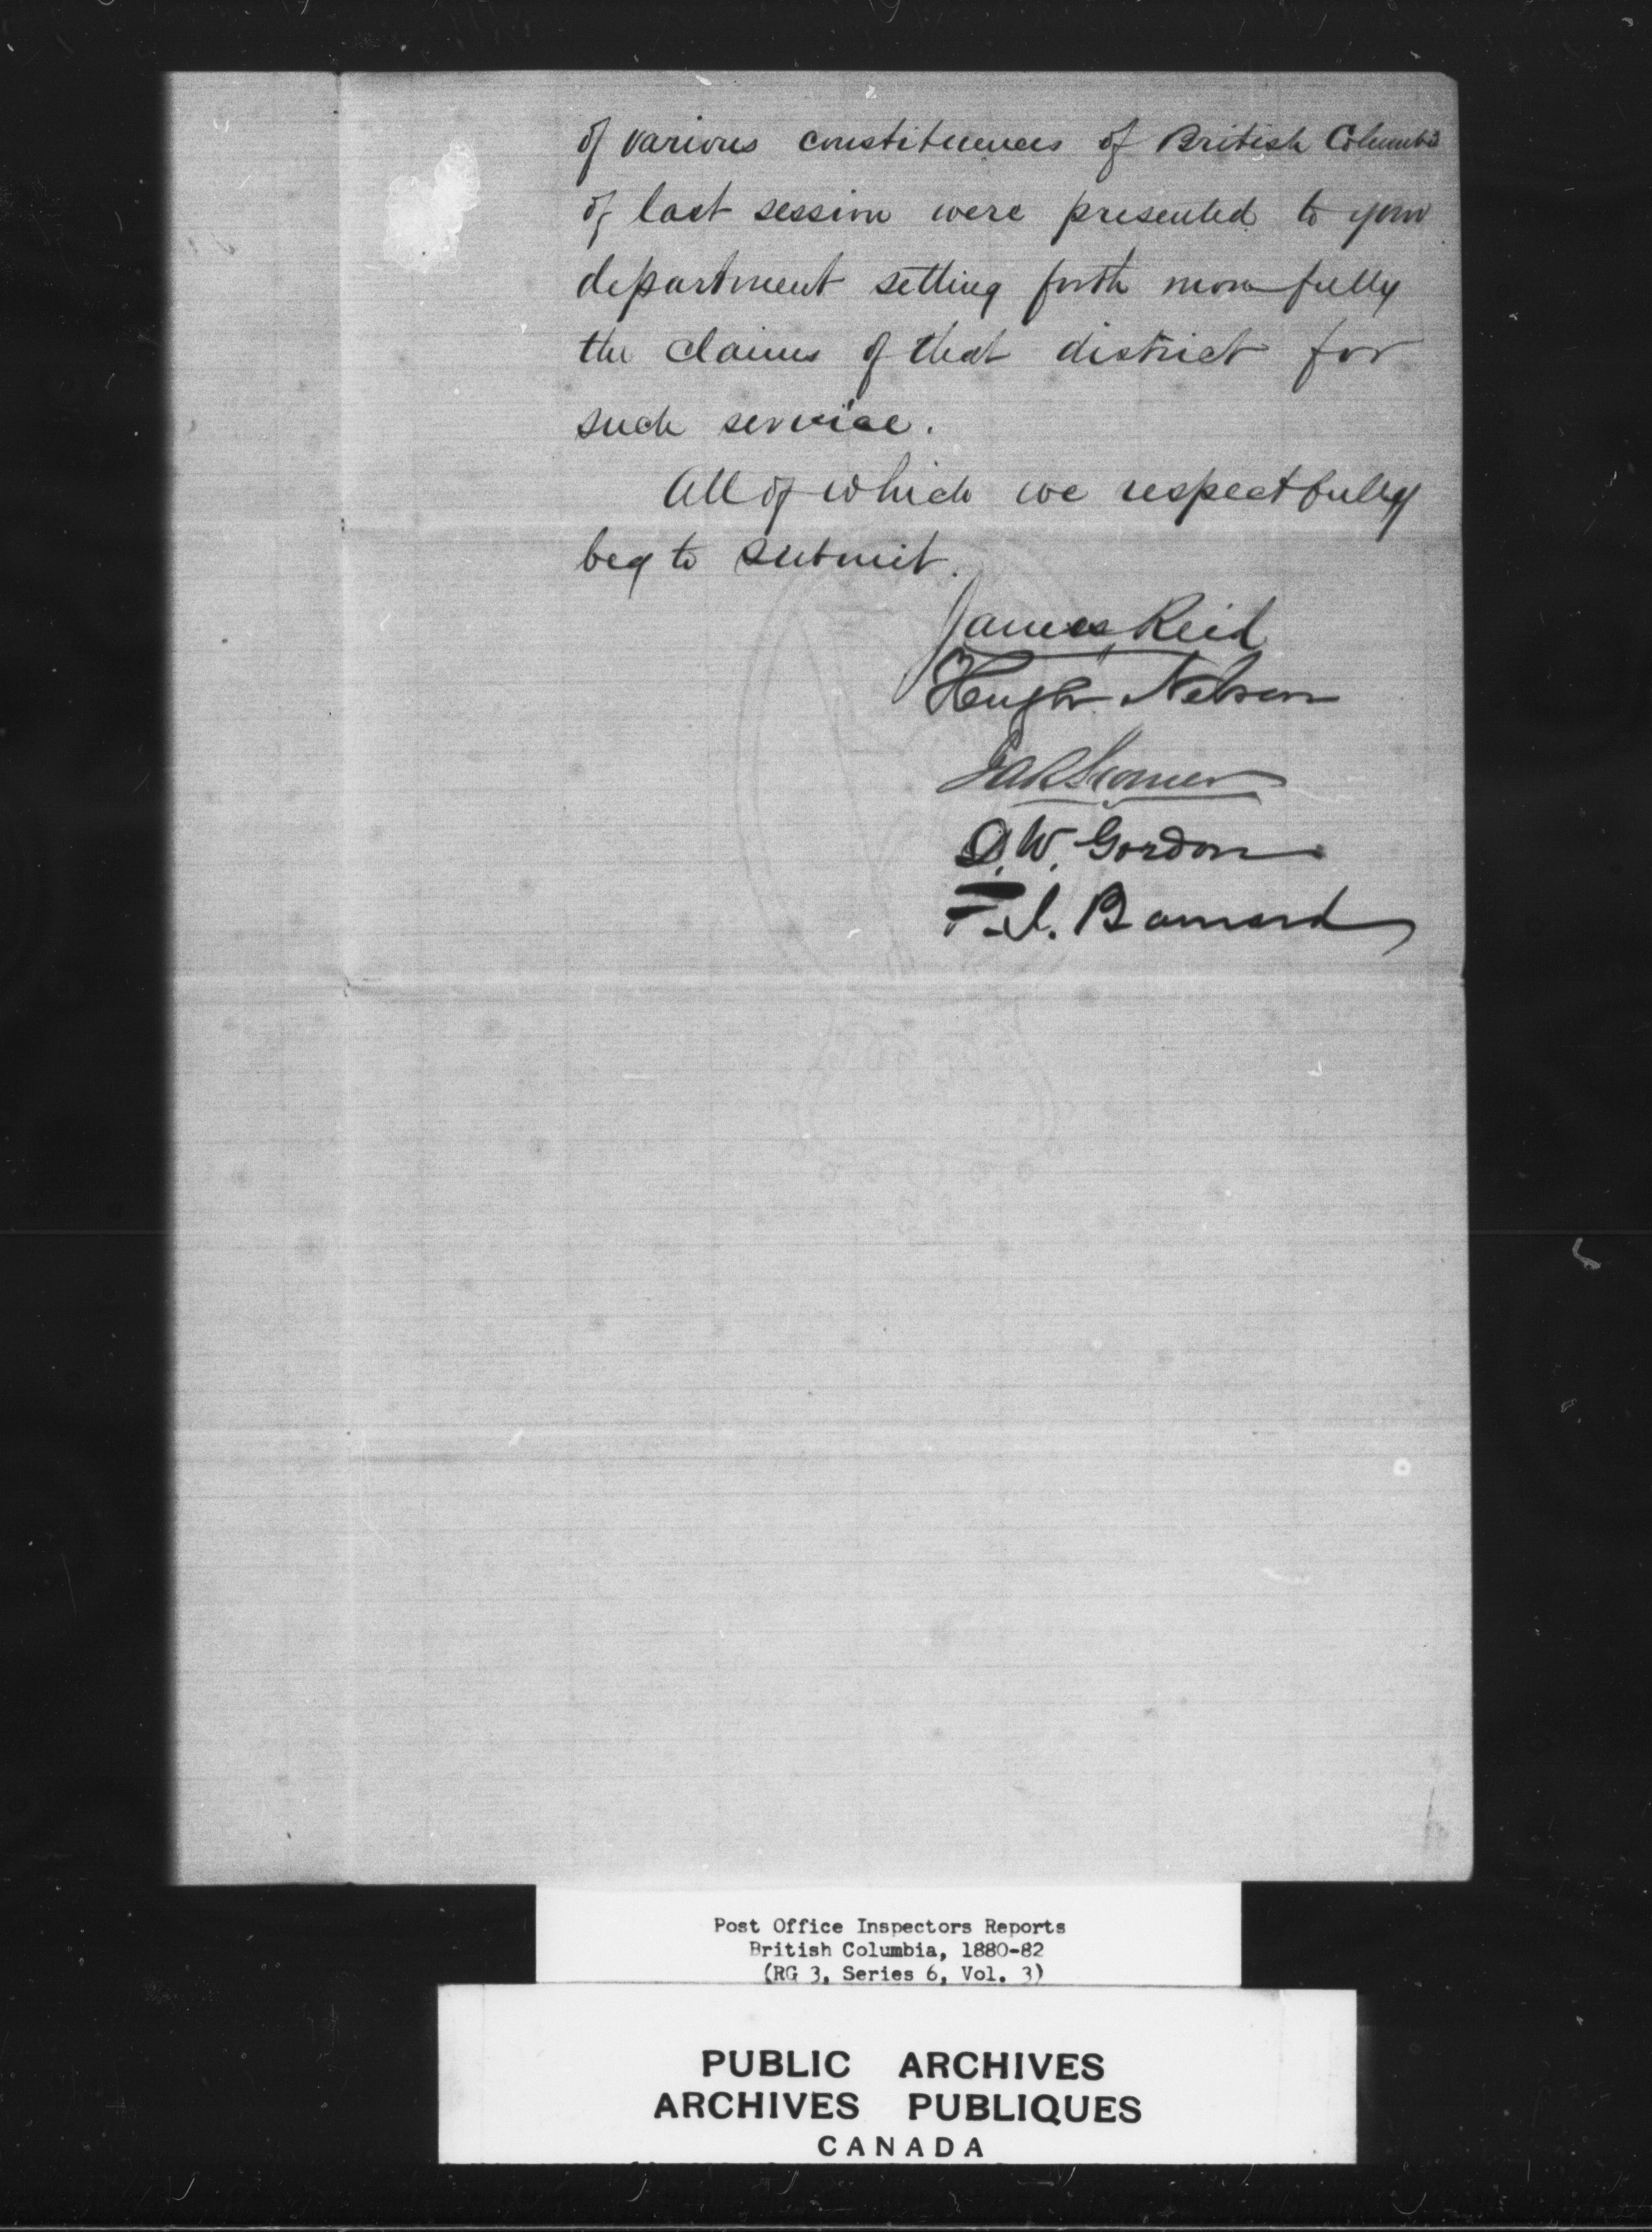 of various constituences of British Columbia
of last session were presented to your
department setting forth more fully
the claims of that district for
such service.
All of which we respectfully
beg to submit.
James Reid
Hugh Nelson
D. W. Gordon
F. J. Barnard
Post Office Inspectors Reports
British Columbia, 1880-82
(RG 3, Series 6, Vol. 3)
PUBLIC ARCHIVES
ARCHIVES PUBLIQUES
CANADA